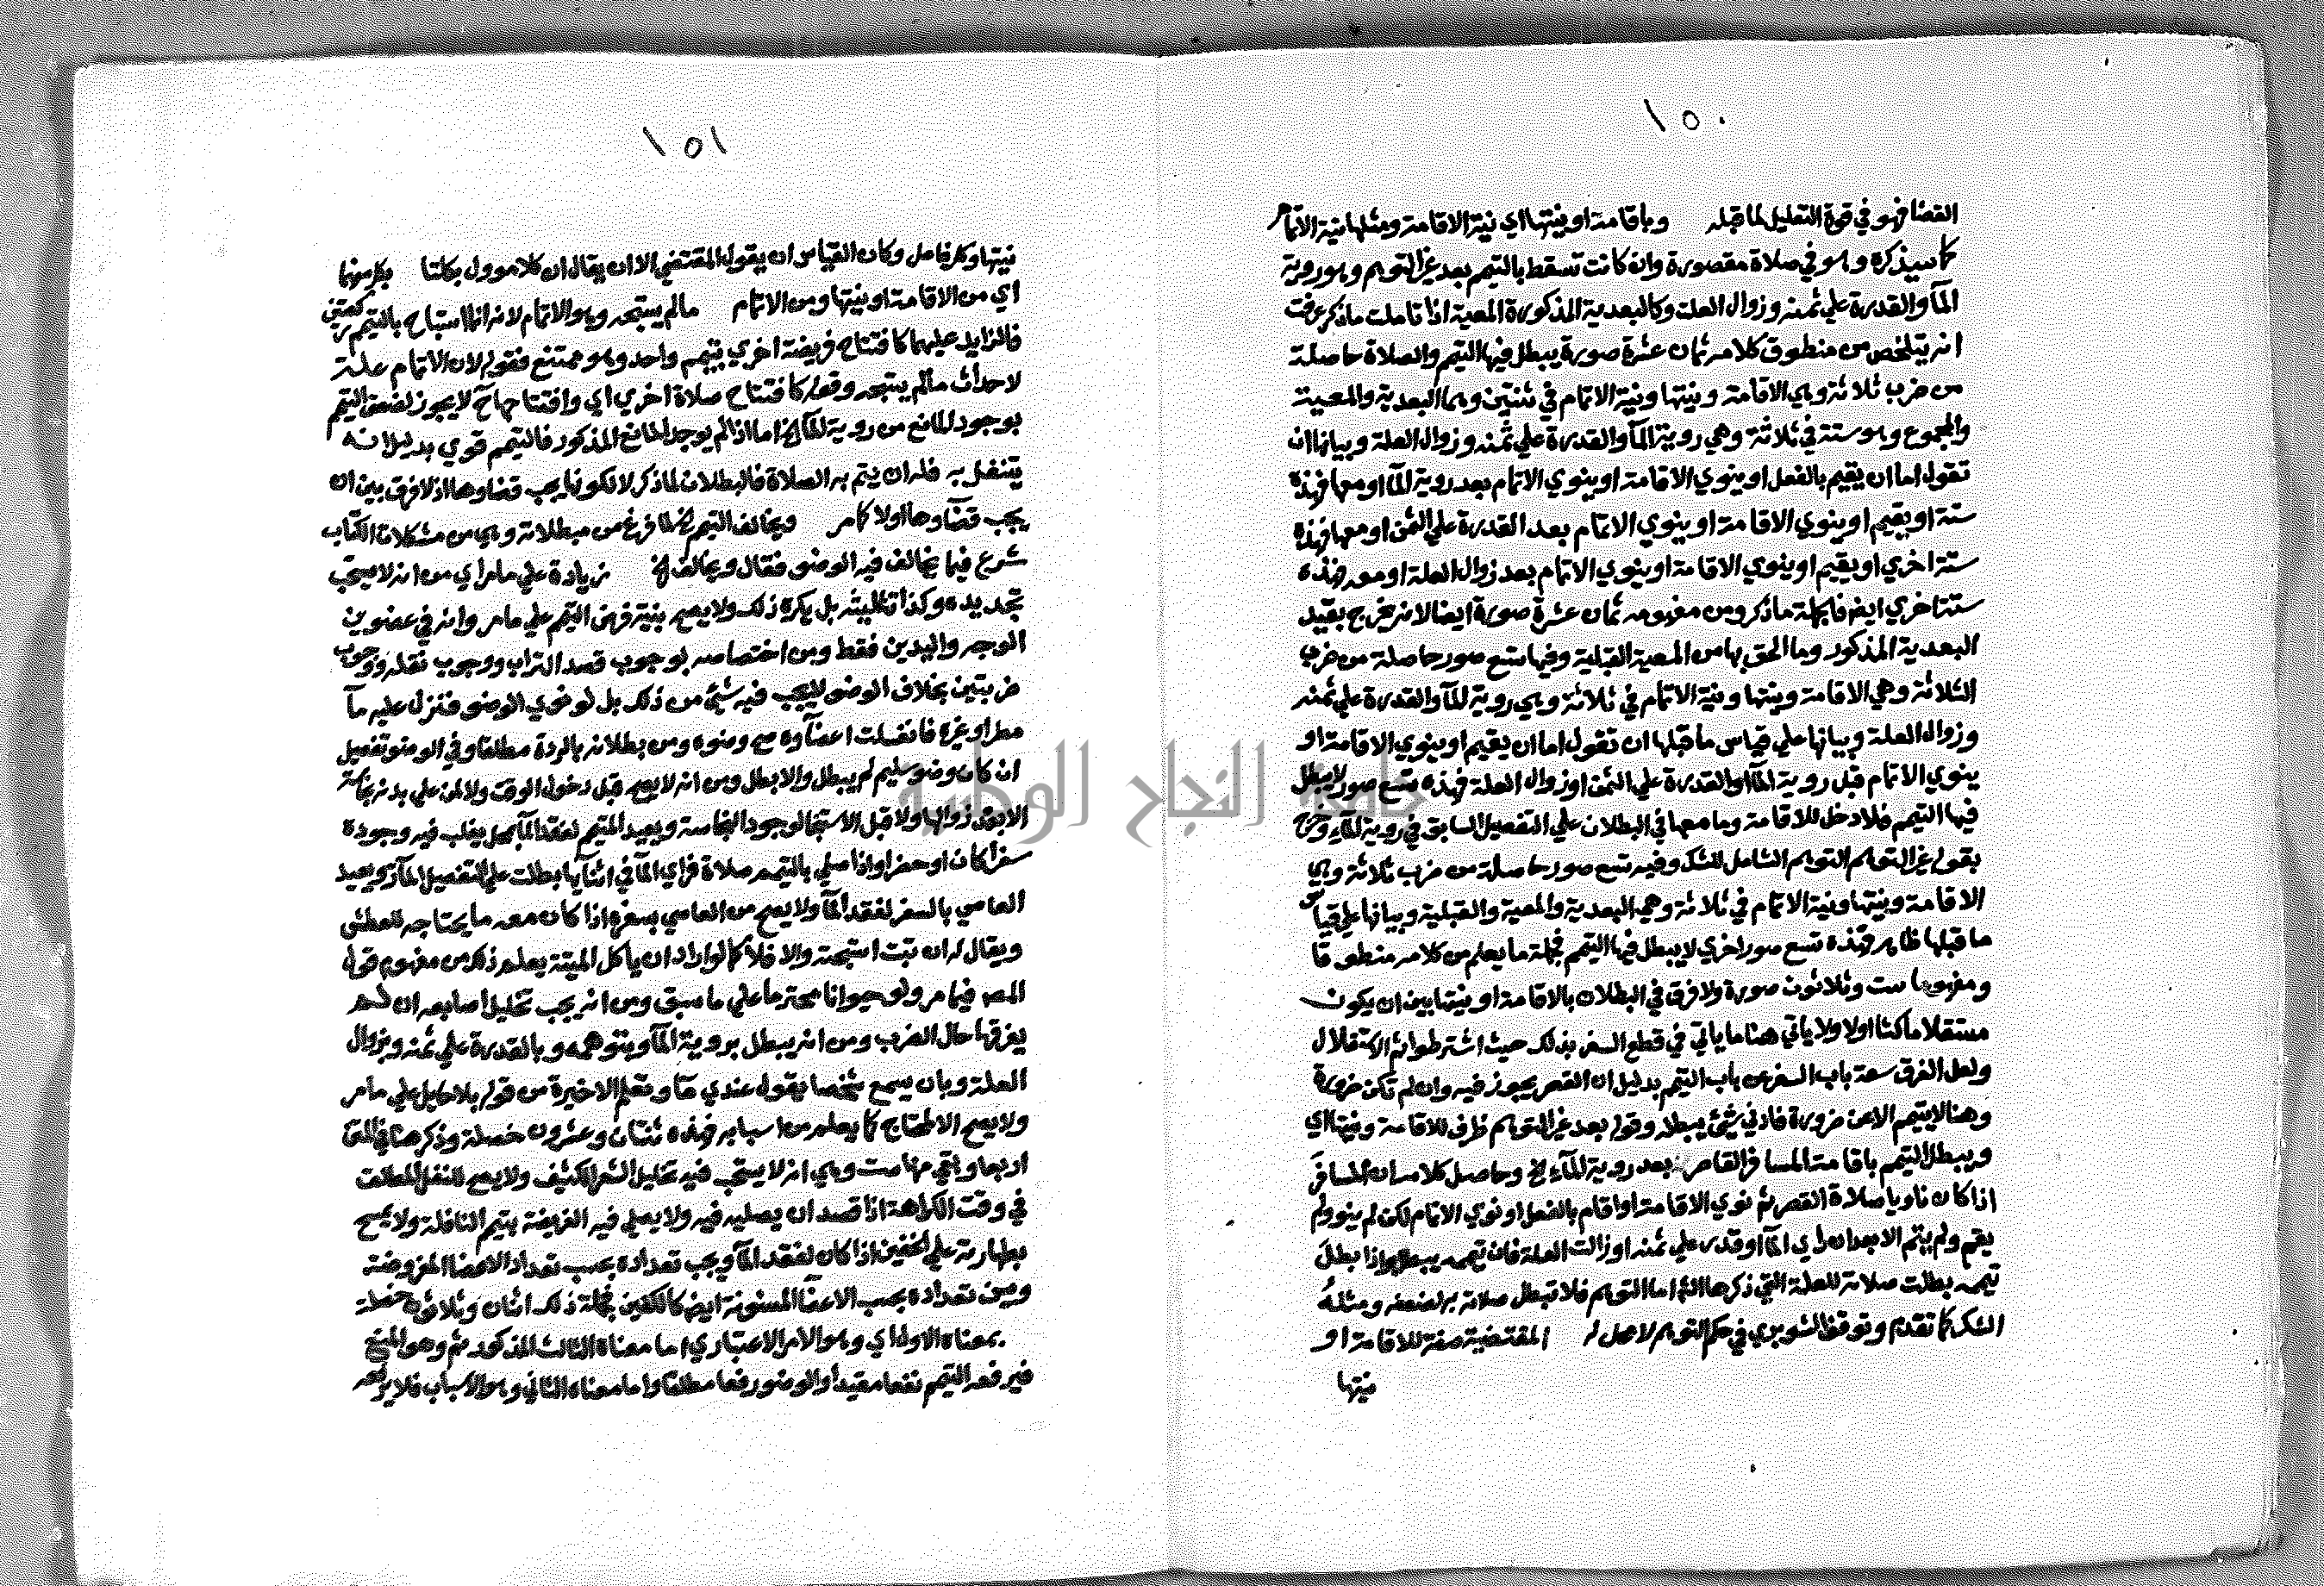 ١٥٠
القضا فهو في قوة التعليل لما قبله وباقامة او نيتها اي نية الاقامة ومثلها نية الاتمام
كما سيذكره وهو في صلاة مقصورة وان كانت تسقط بالتيمم بعد غير التوهم وهو روية
المآ والقدرة علي ثمنه وزوال العلة وكالبعدية المذكورة المعية اذا تاملت ما ذكر عرفت
انه يتلخص من منطوق كلامه ثمان عشرة صورة يبطل فيها التيمم والصلاة حاصلة
من ضرب ثلاثة وهي الاقامة ونيتها ونية الاتمام في ثنتين وهما البعدية والمعية
والمجموع وهو ستة في ثلاثة وهي روية المآ والقدرة علي ثمنه وزوال العلة وبيانها ان
تقول اما ان يقيم بالفعل او ينوي الاقامة او ينوي الاتمام بعد روية المآ او معها فهذه
ستة او يقيم او ينوي الاقامة او ينوي الاتمام بعد القدرة علي الثمن او معها فهذه
ستة اخري او يقيم او ينوي الاقامة او ينوي الاتمام بعد زوال العلة او معه فهذه
ستة اخري ايضا فجملة ما ذكر ومن مفهومه ثمان عشرة صورة ايضا لانه يخرج بقيد
البعدية المذكور وما الحق بها من المعية القبلية وفيها تسع صور حاصلة من ضرب
الثلاثة وهي الاقامة ونيتها ونية الاتمام في ثلاثة وهي روية المآ والقدرة علي ثمنه
وزوال العلة وبيانها علي قياس ما قبلها ان تقول اما ان يقيم او ينوي الاقامة او
ينوي الاتمام قبل روية المآ او القدرة علي الثمن او زوال العلة فهذه تسع صور لا يبطل
فيها التيمم فلا دخل للاقامة وما معها في البطلان علي التفصيل السابق في روية المآء وخرج
بقوله غير التوهم التوهم الشامل للشك وفيه تسع صور حاصلة من ضرب ثلاثة وهي
الاقامة ونيتها ونية الاتمام في ثلاثة وهي البعدية والمعية والقبلية وبيانها علي قياس
ما قبلها ظاهر فهذه تسع صور اخري لا يبطل فيها التيمم فجملة ما يعلم من كلامه منطوقا
ومفهوما ست وثلاثون صورة ولا فرق في البطلان بالاقامة او نيتها بين ان يكون
مستقلا ماكثا اولا ولا ياتي هنا ما ياتي في قطع السفر بذلك حيث اشترطوا ثم الاستقلال
ولعل الفرق سعة باب السفر عن باب التيمم بدليل ان القصر يجوز فيه وان لم تكن ضرورة
وهنا لا يتيمم الا عن ضرورة فادني شيئ يبطله وقوله بعد غير التوهم ظرف للاقامة ونيتها اي
ويبطل التيمم باقامة المسافر القاصر بعد روية المآء الخ وحاصل كلامه ان المسافر
اذا كان ناويا صلاة القصر ثم نوي الاقامة او اقام بالفعل او نوي الاتمام لكن لم ينو ولم
يقم ولم يتم الا بعد ان راي المآ او قدر علي ثمنه او زالت العلة فان تيممه يبطل واذا بطل
تيممه بطلت صلاته للعلة التي ذكرها الش اما التوهم فلا تبطل صلاته به لضعفه ومثله
الشك كما تقدم وتوقف الشوبري في حكم التوهم لا محل له المقتضية صفة للاقامة او
نيتها
١٥١
نيتها وكل فاصل وكان القياس ان يقول المقتضي الا ان يقال ان كلا موول بكلتا بكل منهما
اي من الاقامة او نيتها ومن الاتمام ما لم يستبحه وهو الاتمام لانه انما استباح بالتيمم ركعتين
فالزايد عليهما كافتتاح فريضة اخري بتيمم واحد وهو ممتنع فقوله لان الاتمام علة
لاحداث ما لم يستبحه وقوله كافتتاح صلاة اخري اي وافتتاحها لا يجوز لضعف التيمم
بوجود المانع من روية المآ الخ اما اذا لم يوجد المانع المذكور فالتيمم قوي بدليل انه
يتنفل به فله ان يتم به الصلاة فالبطلان لما ذكر لا لكونها يجب قضاوها اذ لا فرق بين ان
يجب قضآوها اولا كما مر ويخالف التيمم الخ لما فرغ من مبطلاته وهي من مشكلات الكتاب
شرع فيما يخالف فيه الوضو فقال ويخالف الخ زيادة علي ما مر اي من انه لا يستحب
تجديده وكذا تثليثه بل يكره ذلك ولا يصح بنية فرض التيمم علي ما مر وانه في عضوين
الوجه واليدين فقط ومن اختصاصه بوجوب قصد التراب ووجوب نقله ووجوب
ضربتين بخلاف الوضو لا يجب فيه شيئ من ذلك بل لو نوي الوضو فنزل عليه مآ
مطر او غيره فانغسلت اعضآوه صح وضوه ومن بطلانه بالردة مطلقا وفي الوضو تفصيل
ان كان وضو سليم لم يبطل والا بطل ومن انه لا يصح قبل دخول الوقت ولا لمن علي بدنه نجاسة
الا بعد زوالها ولا قبل الاستنجا لوجود النجاسة ويعيد المتيمم لفقد المآ بمحل يغلب فيه وجوده
سفرا كان او حضرا واذا صلي بالتيمم صلاة فراي المآ في اثنآيها بطلت علي التفصيل المآر ويعيد
العاصي بالسفر لفقد المآ ولا يصح من العاصي بسفره اذا كان معه ما يحتاجه للعطش
ويقال له ان تبت استبحته والا فلا كما لو اراد ان ياكل الميتة يعلم ذكر من مفهوم قول
المص فيما مر ولو حيوانا محترما علي ما سبق ومن انه يجب تخليل اصابعه ان لم
يفرقها حال الضرب ومن انه يبطل بروية المآ وبتوهمه وبالقدرة علي ثمنه وبزوال
العلة وبان يسمع شخصا يقول عندي مآ وتعلم الاخيرة من قوله بلا حايل علي ما مر
ولا يصح الا لمحتاج كما يعلم من اسبابه فهذه ثنتان وعشرون خصلة وذكر هنا في المتن
اربعا وبقي منها ست وهي انه لا يستحب فيه تخليل الشعر الكثيف ولا يصح للنفل المطلق
في وقت الكراهة اذا قصد ان يصليه فيه ولا يصلي فيه الفريضة بتيمم النافلة ولا يمسح
بطهارته علي الخفين اذا كان لفقد المآ ويجب تعداده بحسب تعداد الاعضا المفروضة
ويسن تعداده بحسب الاعضآ المسنونة ايضا كالكفين فجملة ذلك اثنان وثلاثون خصلة
بمعناه الاول اي وهو الامر الاعتباري اما معناه الثالث المذكور ثم وهو المنع
فيرفعه التيمم نفعا مقيدا والوضو رفعا مطلقا واما معناه الثاني وهو الاسباب فلا يرفعه
جامعة النجاح الوطنية